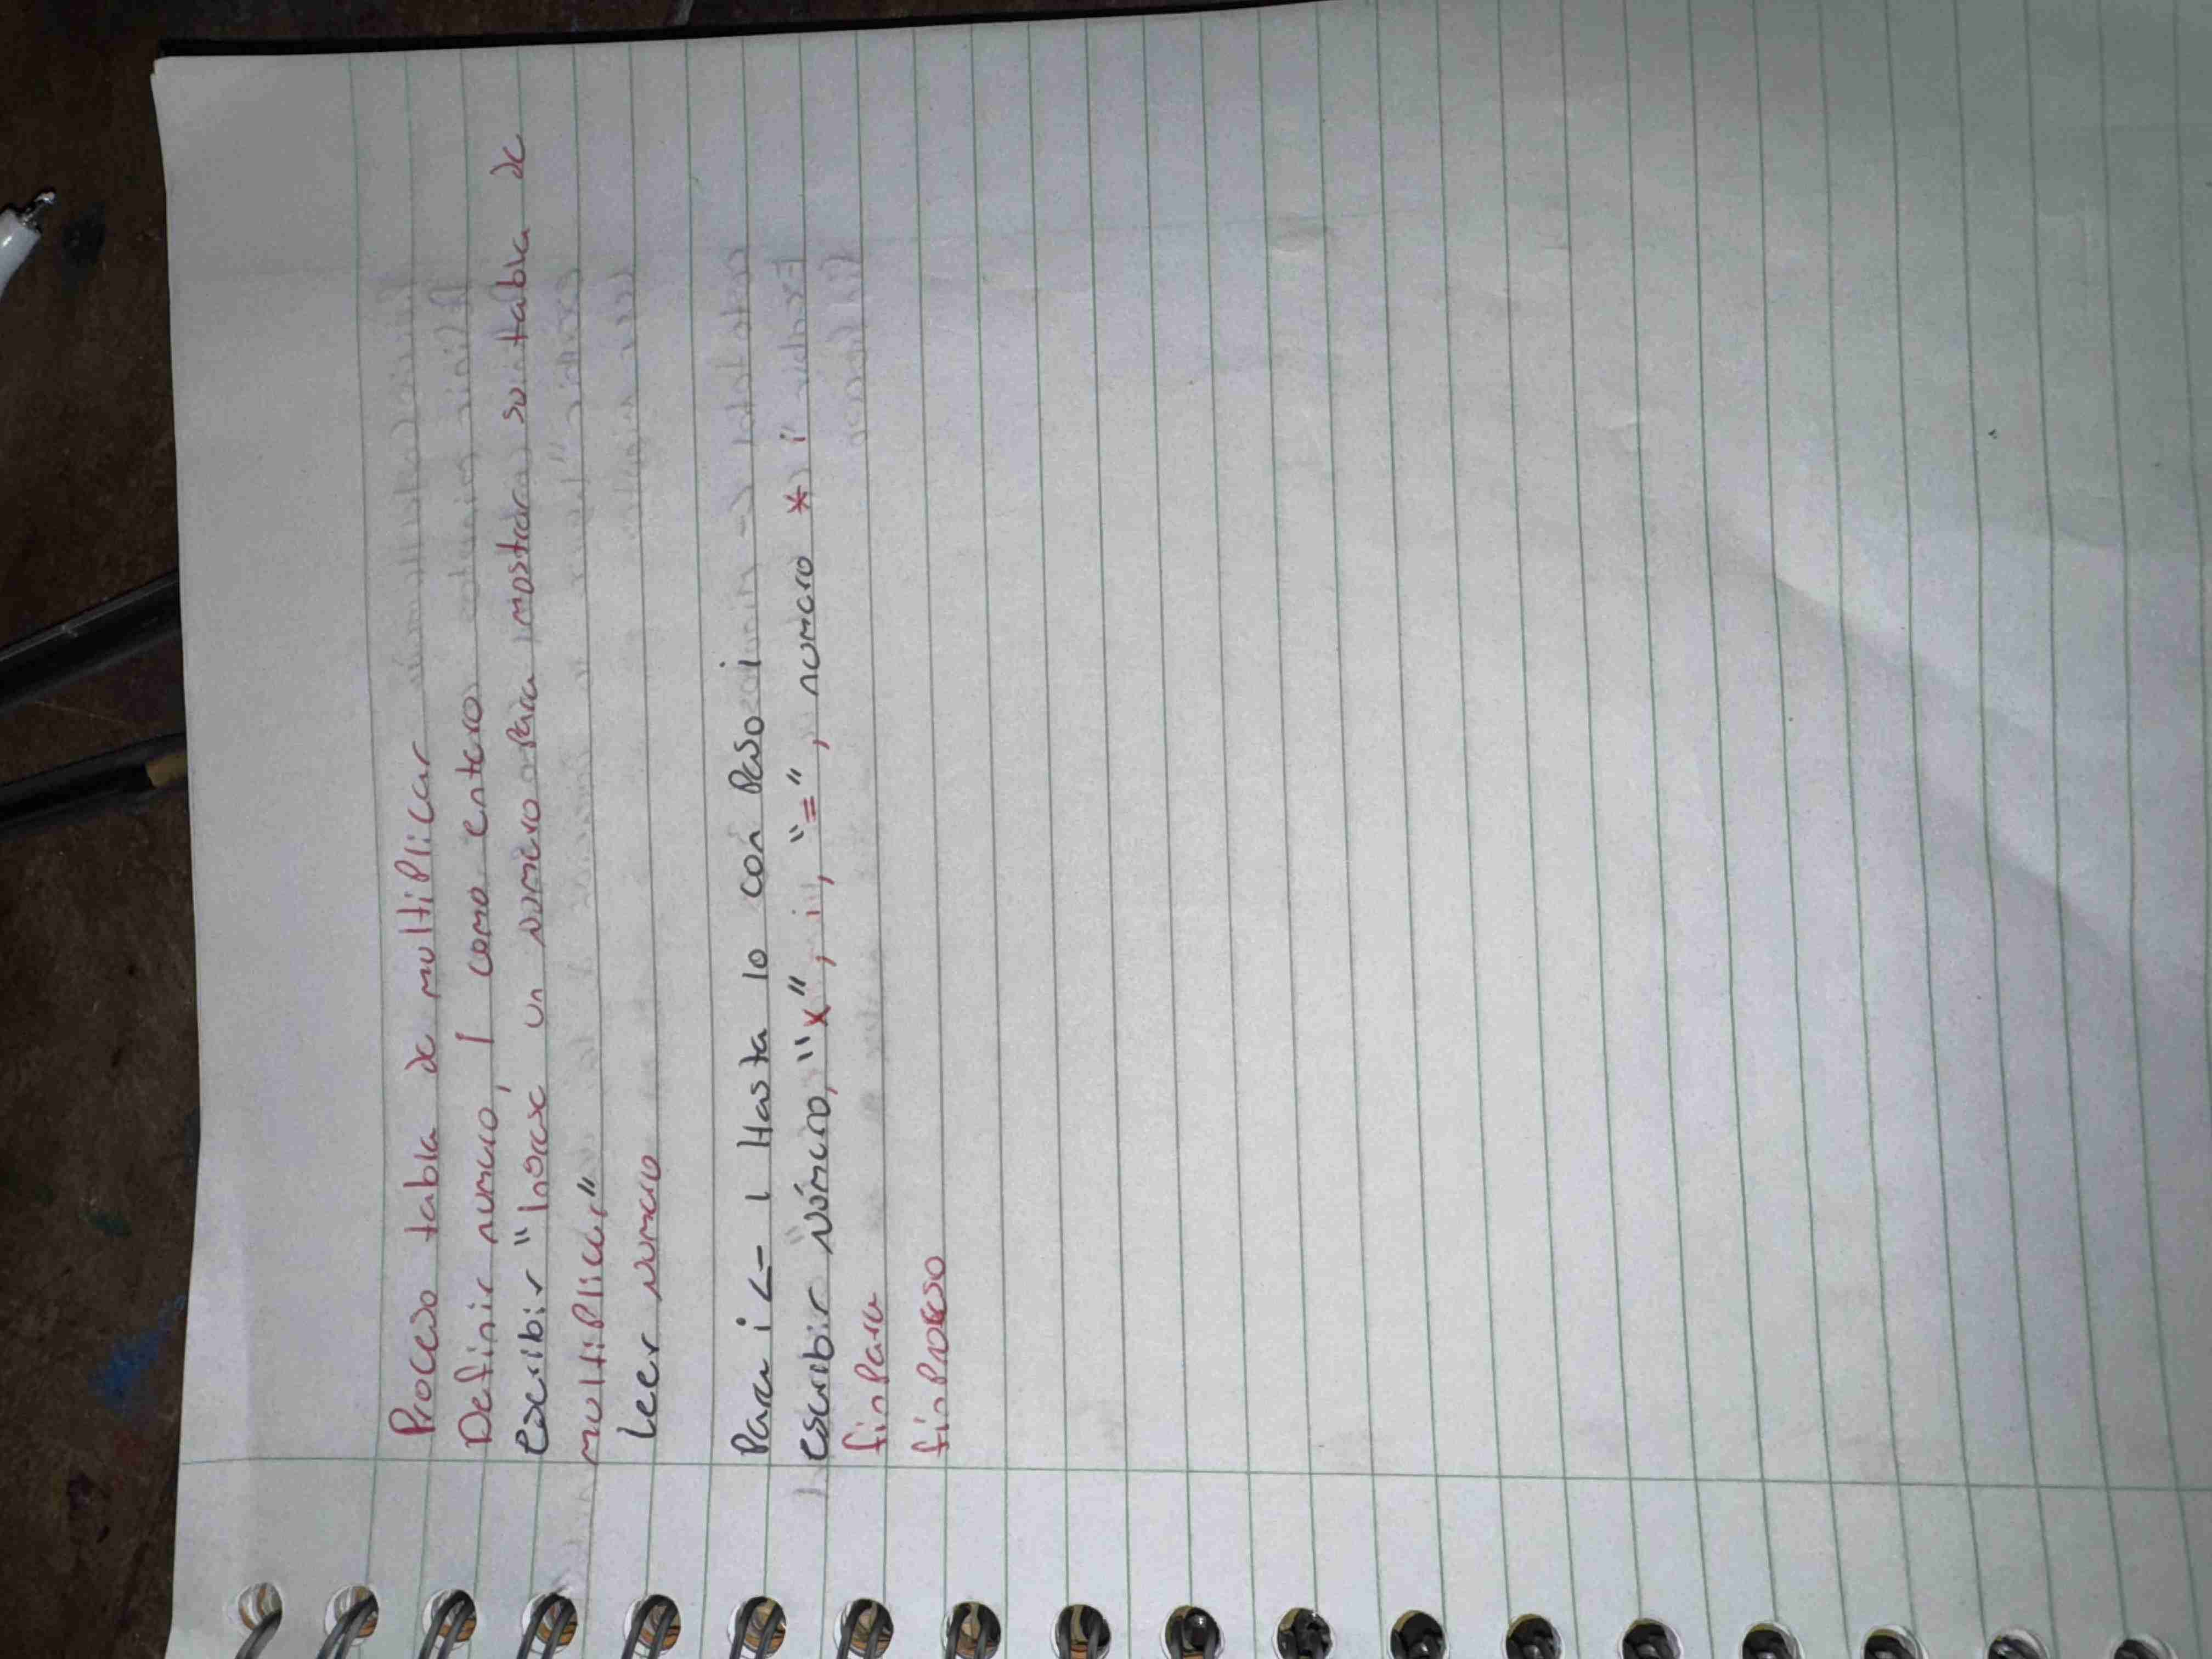 Proceso tabla de multiplicar
Definir numero, I como entero
escribir "Ingrese un número para mostrar su tabla de
multiplicar"
Leer numero
Para i <- 1 Hasta 10 con Paso i
escribir número, "x", i, "=", numero * i
finPara
finProceso